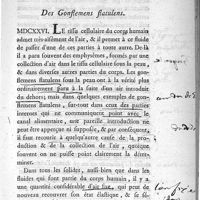 Des Gonflemens flatulens.
MDCXXVI. LE tissu cellulaire du corps humain
admet très-aisément de l'air, & il permet à ce fluide
de passer d'une de ces parties à toute autre. De-là
il a paru souvent des emphysêmes, formés par une
collection d'air dans le tissu cellulaire sous la peau,
& dans diverses autres parties du corps. Les gon-
flemens flatulens sous la peau ont à la vérité plus
ordinairement paru à la suite d'un air introduit
de dehors; mais dans quelques exemples de gon-
flemens flatulens, sur-tout dans ceux des parties
internes qui ne communiquent point avec le
canal alimentaire, une pareille introduction ne
peut être apperçue ni supposée, & par conséquent,
il faut recourir à quelqu'autre cause de la produc-
tion & de la collection de l'air, quoique
souvent on ne puisse point clairement la déter-
miner.
Dans tous les solides, aussi-bien que dans les
fluides qui font partie du corps humain, il y a
une quantité considérable d'air fixe, qui peut de
nouveau reprendre son état élastique, & être